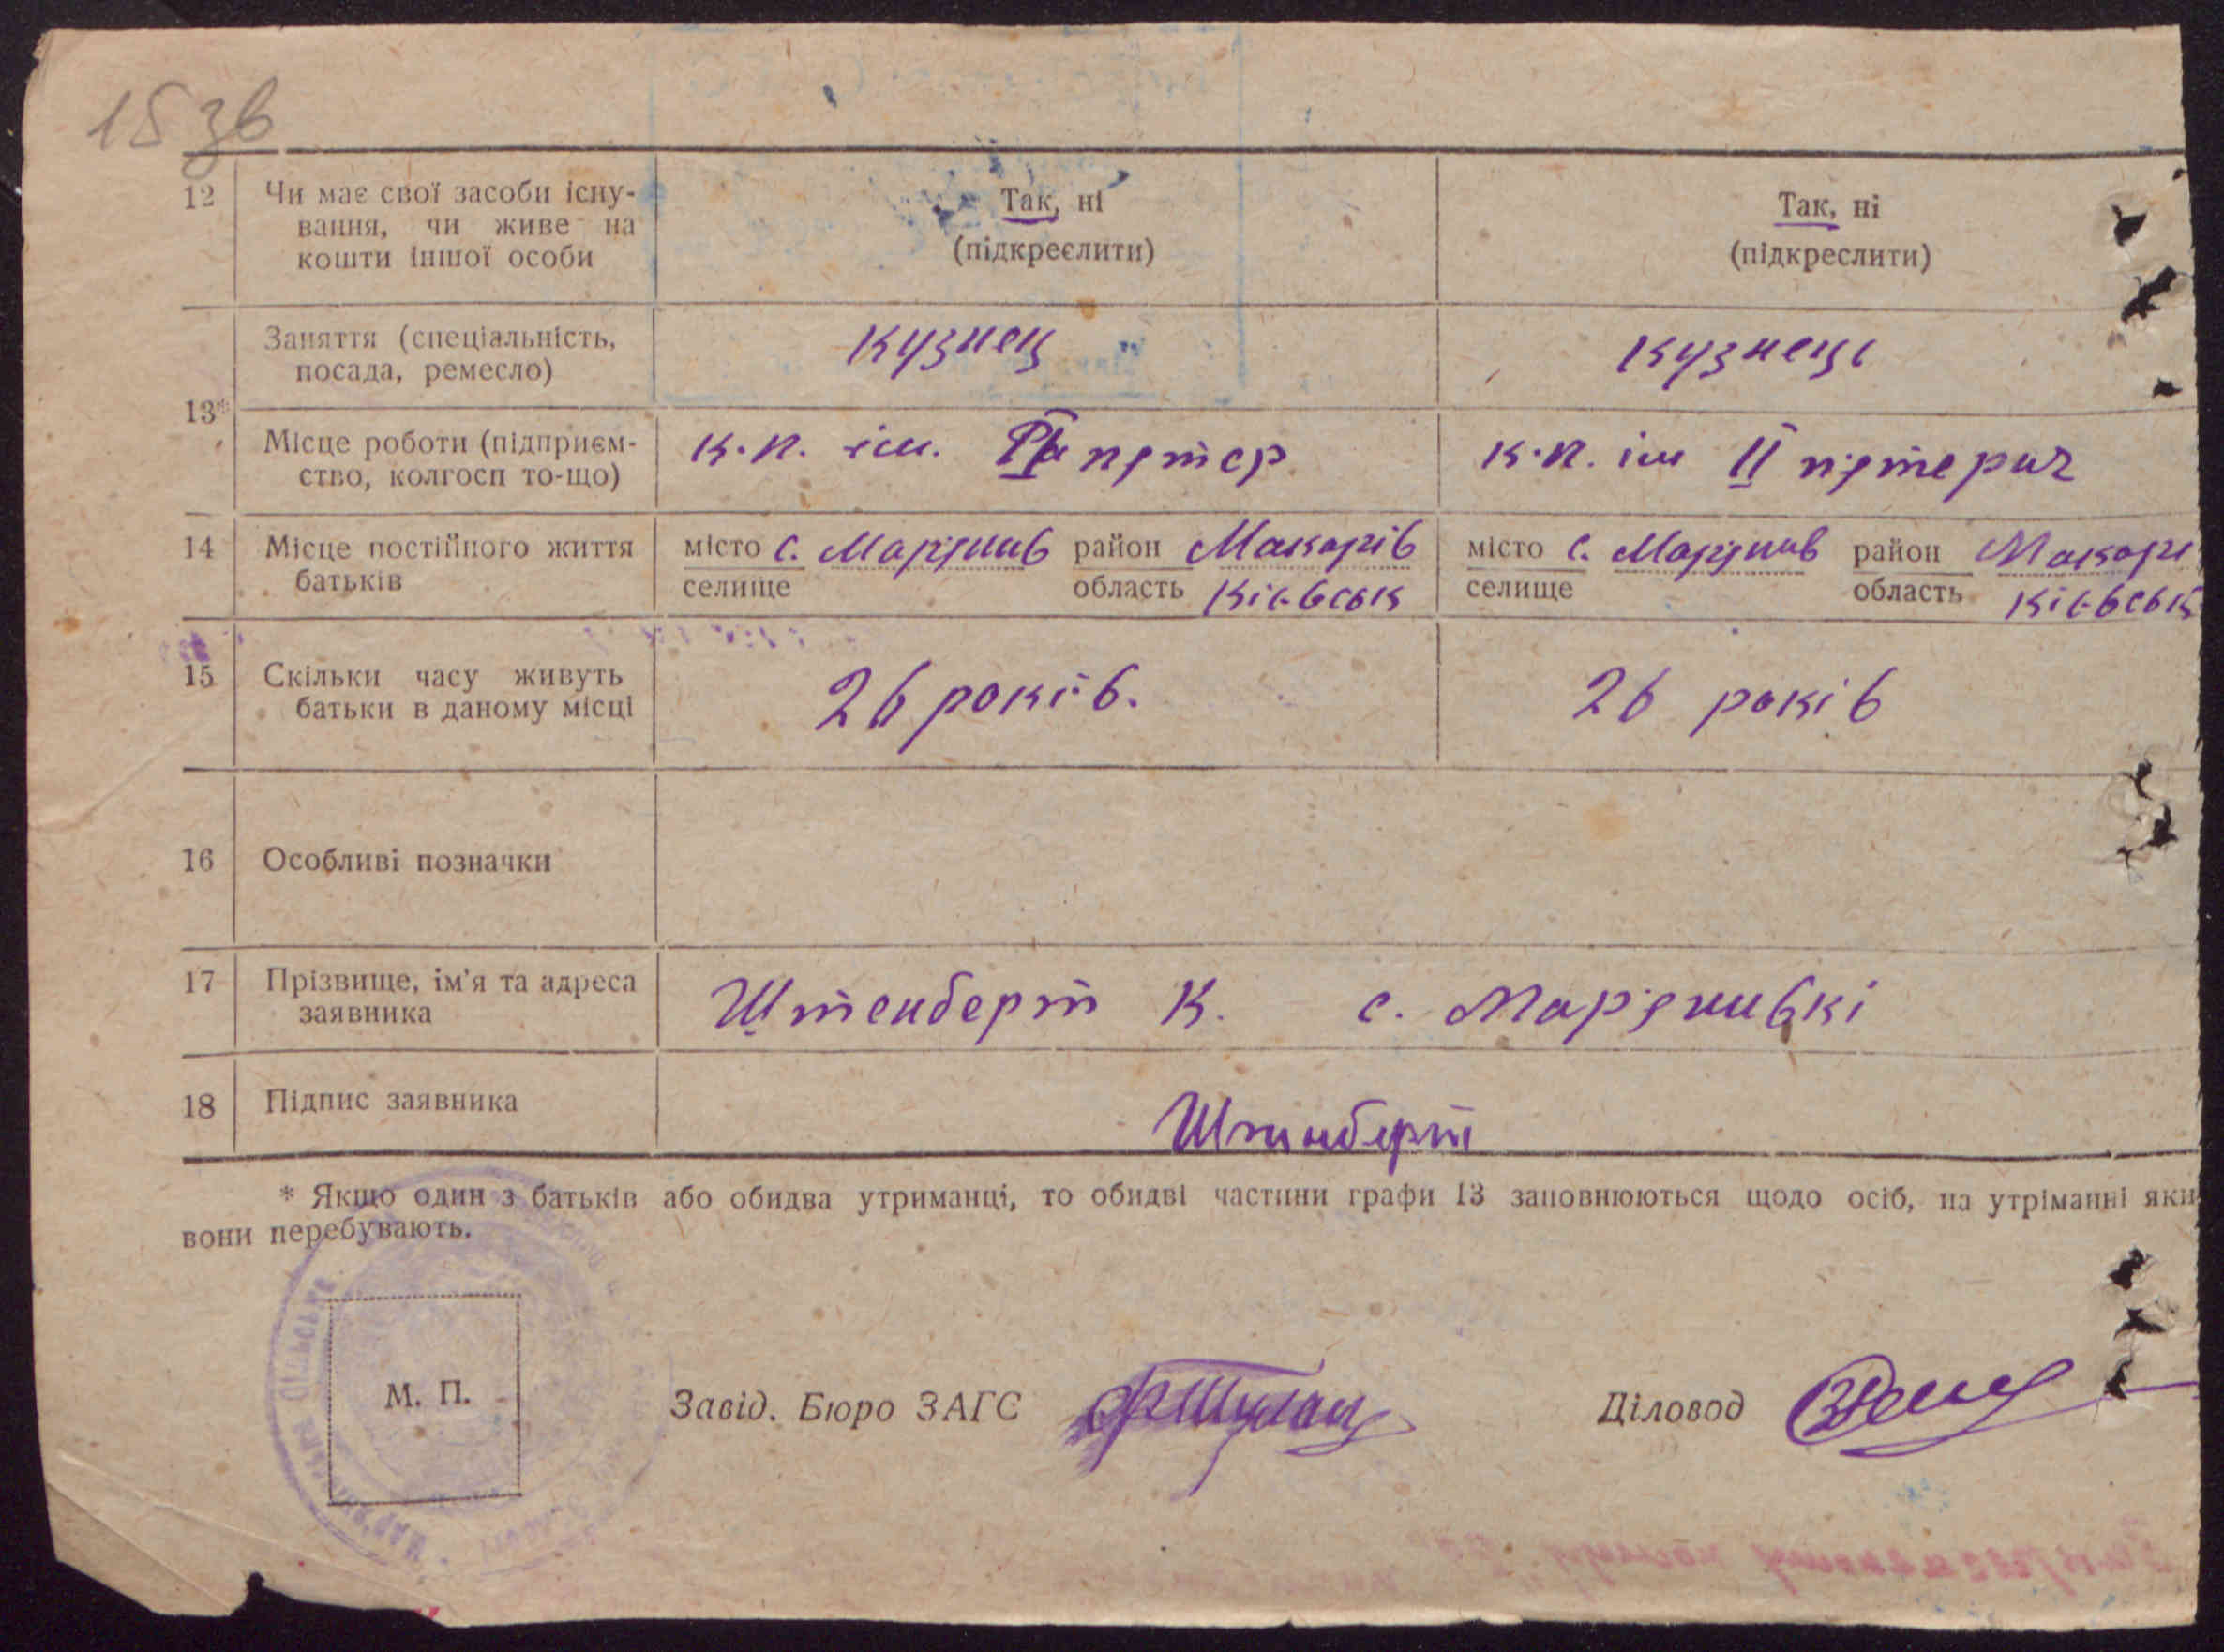 15 зв
12 Чи має свої засоби існу-
вання, чи живе на
кошти іншої особи
Так, ні
(підкреслити)
Так, ні
(підкреслити)
13*
Заняття (спеціальність,
посада, ремесло)
кузнец
кузнец
Місце роботи (підприєм-
ство, колгосп то-що)
к.п. ім. пятер
к.п. ім II пятерич
14 Місце постійного життя
батьків
місто с. Мар'янів район Макарів
селище область Київськ
місто с. Мар'янів район Макарі
селище область Київськ
15 Скільки часу живуть
батьки в даному місці
26 років.
26 років
16 Особливі позначки
17 Прізвище, ім'я та адреса
заявника
Штенберг К. с. Мар'янивкі
18 Підпис заявника
Штенберг
* Якщо один з батьків або обидва утриманці, то обидві частини графи 13 заповнюються щодо осіб, на утріманні яки
вони перебувають.
М. П.
Завід. Бюро ЗАГС
Діловод